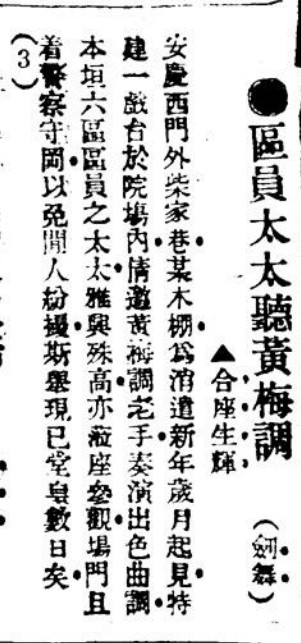 ●區員太太聽黃梅調
▲合座生輝
(劍舞)
安慶西門外柴家巷某木棚爲消遣新年歲月起見特
建一戲台於院塲內情邀黃梅調老手奏演出色曲調
本垣六區區員之太太雅興殊高亦蒞座叅觀塲門且
着警察守岡以免閒人紛擾斯舉現已堂皇數日矣
(3)